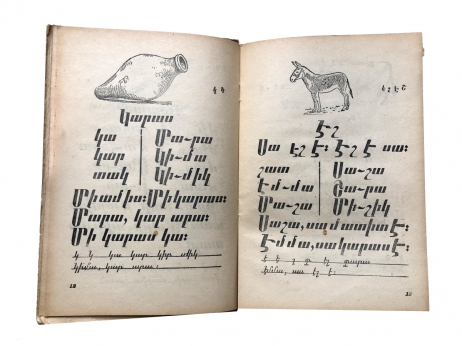 կ Կ
Կարաս
կա Մա-րա
կար Կի-մա
տակ Կի-միկ
Մի ամիս։ Մի կարաս։
Մարա, կար արա։
Մի կարաս կա։
կ կ կա կար կիր միկ
կիմա, կար արա։
12
է շ Է Շ
Էշ
Սա էշ է։ Էշ է սա։
շատ Սա-շա
Էմ-մա Շա-րա
Մա-շա Մի-շիկ
Սաշա, սա մատիտ է։
Էմմա, սա կարաս է։
սա էշ է։
13